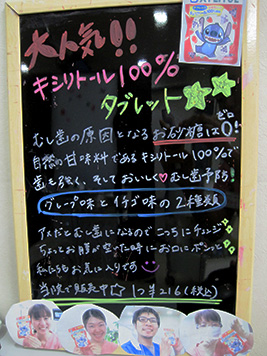 大人気!!
キシリトール100%
タブレット
むし歯の原因となるお砂糖は0!
ゼロ
自然の甘味料であるキシリトール100%で
歯を強く、そしておいしく♡むし歯予防!
グレープ味とイチゴ味の2種類
アメだとむし歯になるのでこっちにチェンジ
ちょっとお腹が空いた時にお口にポンッと
私たちもお気に入りです
当院で販売中 1コ¥216(税込)